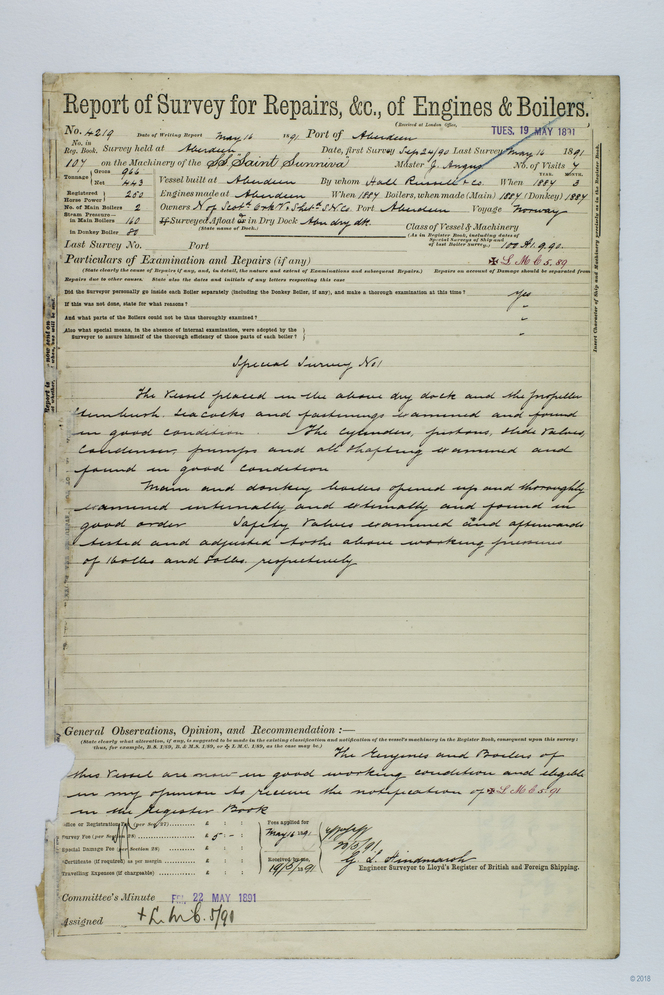 Report of Survey for Repairs, &c., of Engines & Boilers.
(Received at London Office,
TUES. 19 MAY 1891
No. 4219 Date of Writing Report May 16 1891 Port of Aberdeen
No. in Reg. Book. Survey held at Aberdeen Date, first Survey Sep 24/90 Last Survey May 16 1891
107 on the Machinery of the SS Saint Sunniva Master J. Angus No. of Visits 7
Tonnage Gross 966
Net 443
Vessel built at Aberdeen By whom Hall Russell & Co. When 1887 3
YEAR. MONTH.
Registered Horse Power 250 Engines made at Aberdeen When 1887 Boilers, when made (Main) 1887 (Donkey) 1887
No. of Main Boilers 2 Owners N of Scotd. Ork. & Shetd. S.N. Co. Port Aberdeen Voyage Norway
Steam Pressure—
in Main Boilers 160 If Surveyed Afloat or in Dry Dock Abn dry dk.
(State name of Dock.)
in Donkey Boiler 80
Class of Vessel & Machinery
(As in Register Book, including dates of Special Surveys of Ship and of last Boiler Survey.) 100 A1. 9,90.
Last Survey No. Port
✠ L M C 5,89
Particulars of Examination and Repairs (if any)
(State clearly the cause of Repairs if any, and, in detail, the nature and extent of Examinations and subsequent Repairs.) Repairs on account of Damage should be separated from
Repairs due to other causes. State also the dates and initials of any letters respecting this case
Did the Surveyor personally go inside each Boiler separately (including the Donkey Boiler, if any), and make a thorough examination at this time? Yes
If this was not done, state for what reasons? "
And what parts of the Boilers could not be thus thoroughly examined? "
Also what special means, in the absence of internal examination, were adopted by the
Surveyor to assure himself of the thorough efficiency of those parts of each boiler? "
Insert Character of Ship and Machinery precisely as in the Register Book.
Special Survey No 1
The Vessel placed in the above dry dock and the propeller
sternbush, seacocks and fastenings examined and found
in good condition The Cylinders, pistons, slide valves,
condenser, pumps and all shafting examined and
found in good condition
Main and donkey boilers opened up and thoroughly
examined internally and externally and found in
good order Safety Valves examined and afterwards
tested and adjusted to the above working pressures
of 160lbs and 80lbs. respectively
General Observations, Opinion, and Recommendation :—
(State clearly what alteration, if any, is suggested to be made in the existing classification and notification of the vessel's machinery in the Register Book, consequent upon this survey:
thus, for example, B.S. 1/89, B. & M.S. 1/89, or ✠ L.M.C. 1/89, as the case may be.)
The Engines and Boilers of
this Vessel are now in good working condition and eligible
in my opinion to receive the notification of ✠ L M C 5.91
in the Register Book
Office or Registration Fee (per Section 27) £ : :
Survey Fee (per Section 28) £ 5 : - :
Special Damage Fee (per Section 28) £ : :
Certificate (if required) as per margin £ : :
Travelling Expenses (if chargeable) £ : :
Fees applied for
May 16 1891
Received by me,
19/5/1891
20/5/91
G. L. Hindmarsh
Engineer Surveyor to Lloyd's Register of British and Foreign Shipping.
Committee's Minute FRI. 22 MAY 1891
Assigned + L.M.C. 5/91
© 2018